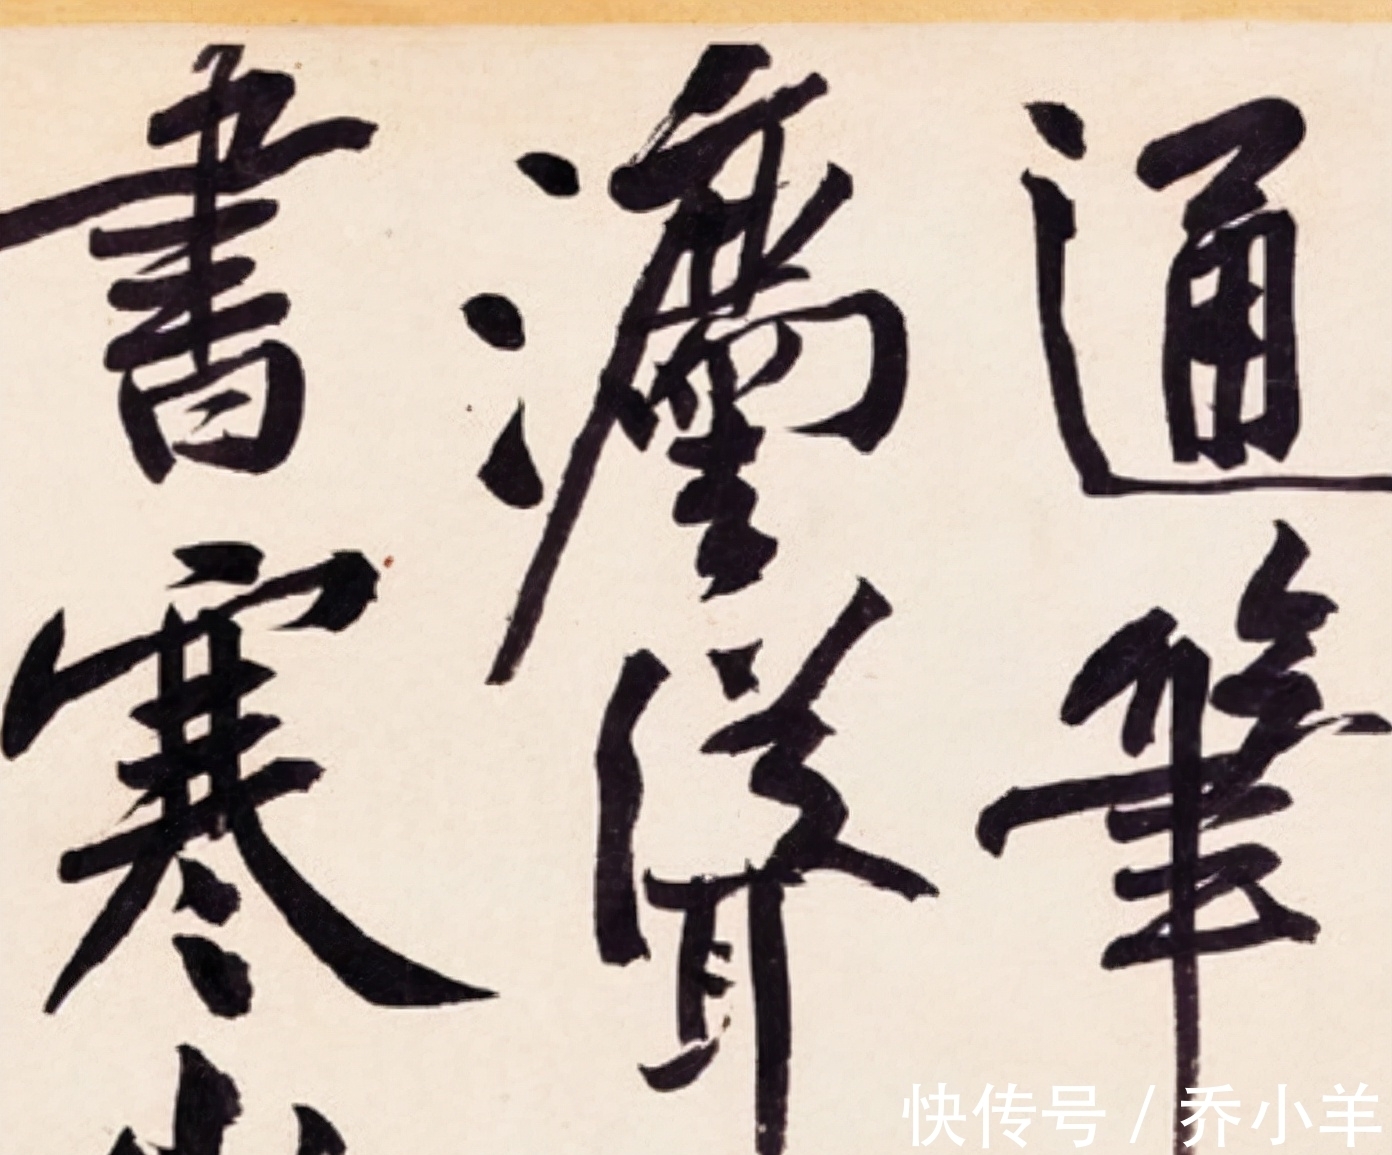 通筆
灋聳
書寒
快传号 / 乔小羊